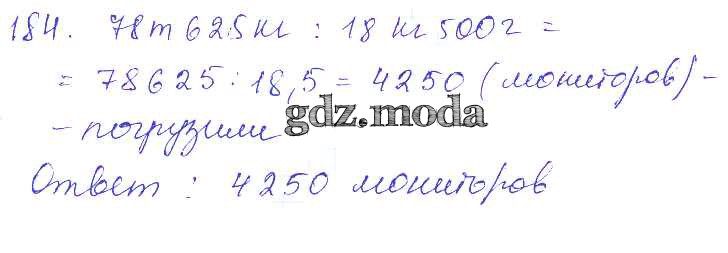 184. 78т 625кг : 18 кг 500г =
= 78625 : 18,5 = 4250 (мониторов) -
- погрузили
gdz.moda
Ответ : 4250 мониторов